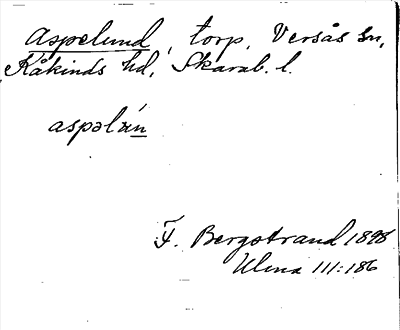 Aspelund, torp, Versås sn,
Kåkinds hd, Skarab. l.
F. Bergstrand 1898
Ulma III:186